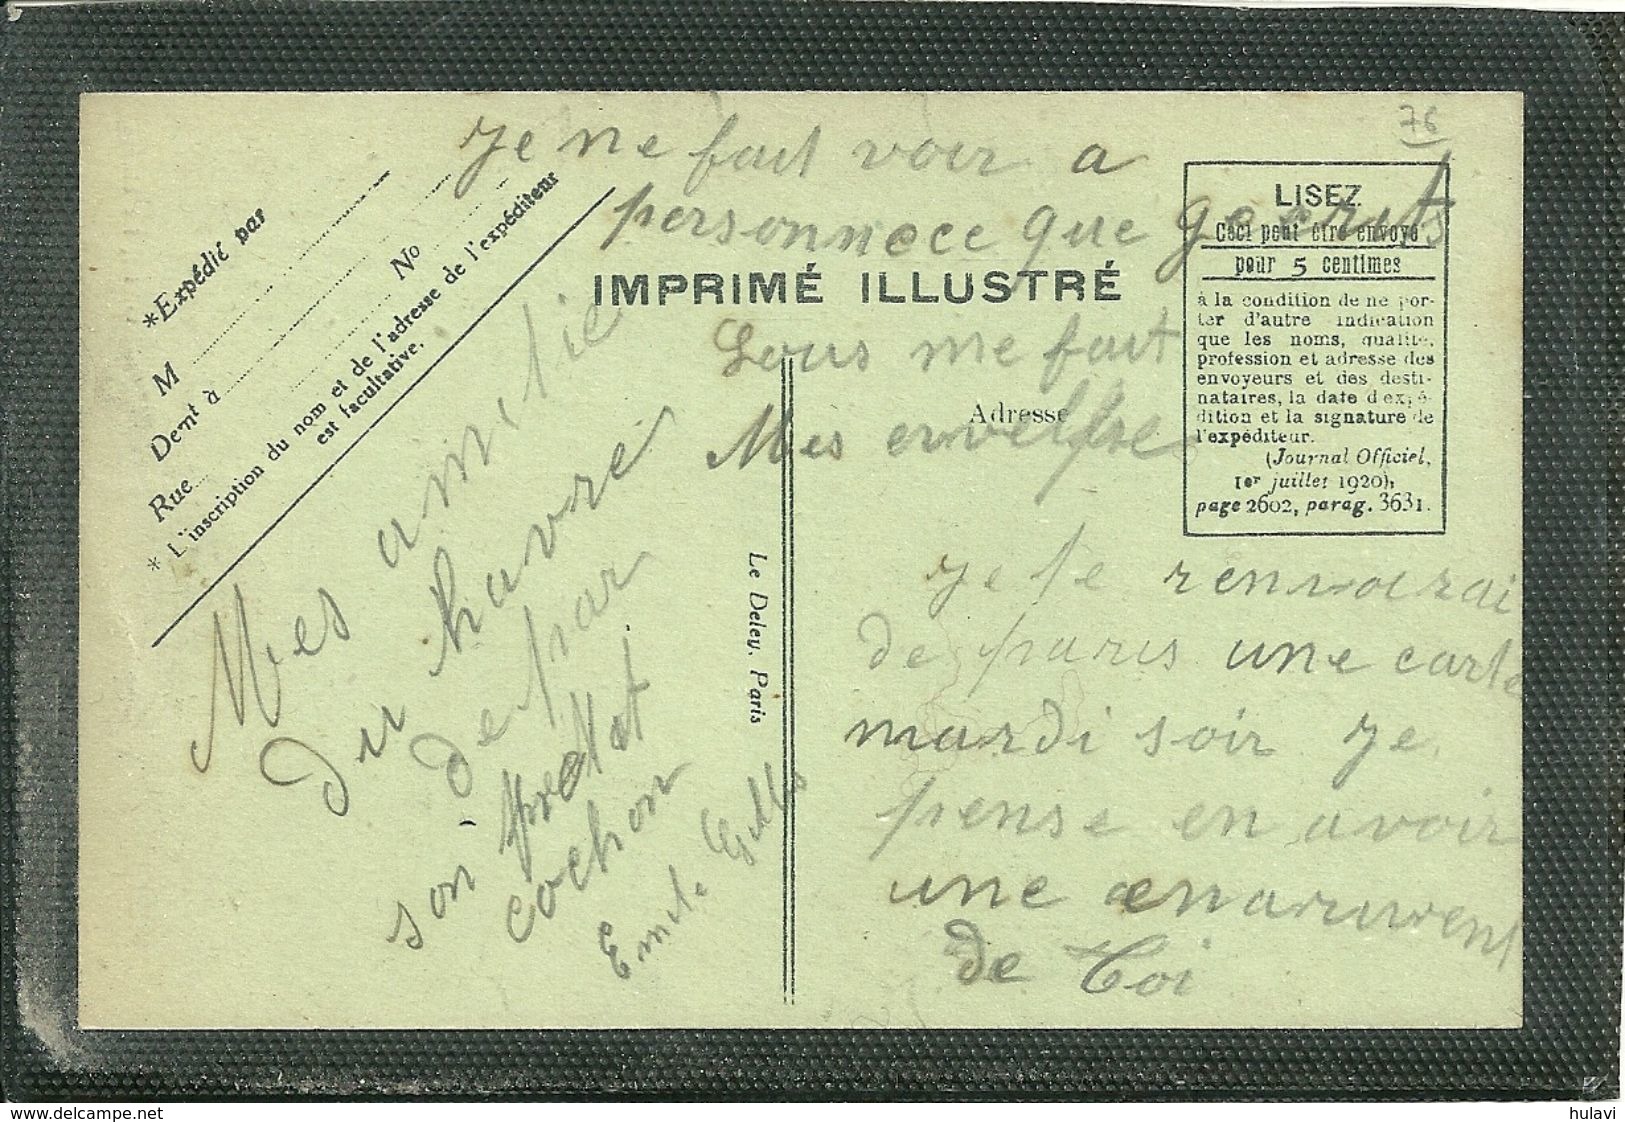 76
Je ne fait voir a
personnece que
*Expédié par
M
Demt à
No
Rue
* L'inscription du nom et de l'adresse de l'expéditeur
est facultative.
IMPRIMÉ ILLUSTRÉ
LISEZ
Ceci peut être envoyé
pour 5 centimes
à la condition de ne por-
ter d'autre indication
que les noms, qualité,
profession et adresse des
envoyeurs et des desti-
nataires, la date d'expé-
dition et la signature de
l'expéditeur.
(Journal Officiel,
1er juillet 1920),
page 2602, parag. 3631.
me fait
Adresse
Mes
Je te renvoirai
de paris une carte
mardi soir Je
pense en avoir
une
de Toi
Le Deley, Paris
Mes amitie
du havre
de par
son
cochon
Emile
www.delcampe.net
hulavi